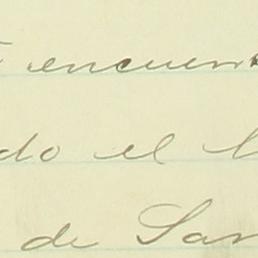 encuen
do el
de San